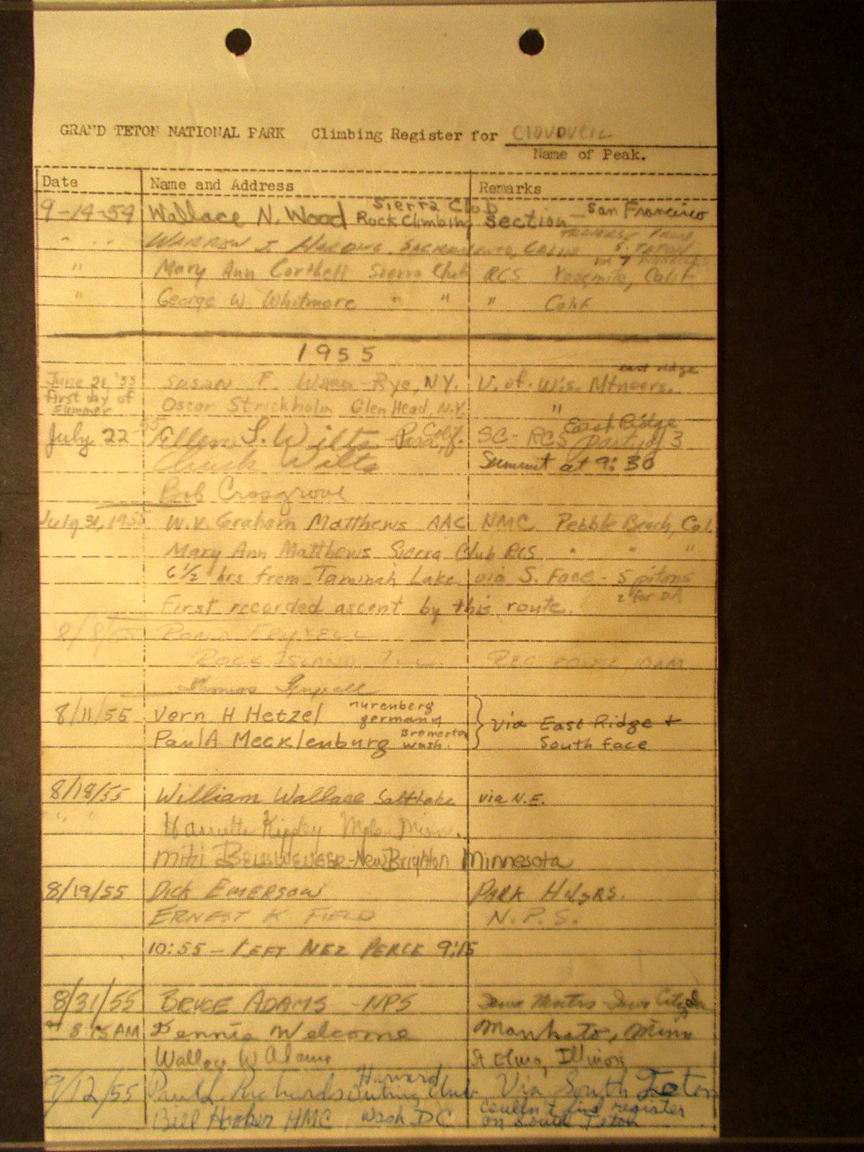 GRAND TETON NATIONAL PARK Climbing Register for CLOUDVEIL
Name of Peak.
Date Name and Address Remarks
9-14-54 Wallace N. Wood Sierra Club Rock Climbing Section - San Francisco
" " WARREN J. HARDING, SACRAMENTO, CALIF TRAVERSE FROM S. TETON IN 7
" Mary Ann Corthell Sierra Club RCS Yosemite, Calif
" George W. Whitmore " " " Calif
1955
June 21 '55 Susan F. Rye, N.Y. U. of Wis. Mtneers. east ridge
first day of summer Oscar Strickholm Glen Head, N.Y. "
July 22 -55 Ellen S. Wilts Calif. SC-RCS East Ridge party of 3
Chuck Wilts Summit at 9:30
Bob Crosgrove
July 31, 1955 W.V. Graham Matthews AAC HMC Pebble Beach, Cal.
Mary Ann Matthews Sierra Club RCS " " "
6½ hrs from Taminah Lake via S. Face - 5 pitons
First recorded ascent by this route. 2 for DA
8/8/55 FRYXELL
ROCK ISLAND, ILL.
Thomas Fryxell
8/11/55 Vern H Hetzel nurenberg germany } via East Ridge +
Paul A Mecklenburg Bremerton wash. South Face
8/18/55 William Wallace Salt Lake via N.E.
" " Mpls. Minn.
Miki - New Brighton Minnesota
8/19/55 DICK EMERSON PARK HDQRS.
ERNEST K FIELD N.P.S.
10:55 - LEFT NEZ PERCE 9:15
8/31/55 BRUCE ADAMS - NPS Iowa Mntrs Iowa City, Ia
8:15 AM Dennis Welcome Mankato, Minn
Wallace W Adams St Elmo, Illinois
9/12/55 Paul L. Richards Harvard Outing Club Via South Teton
Bill Hooker HMC Wash DC Couldn't find register
on South Teton